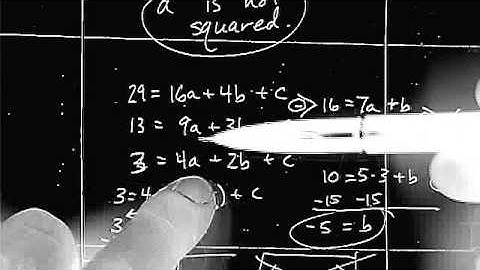 a is not
squared.
29 = 16a + 4b + c
13 = 9a + 3b
3 = 4a + 2b + c
3 = 4 ) + c
3
⊖> 16 = 7a + b
10 = 5·3 + b
-15 -15
-5 = b